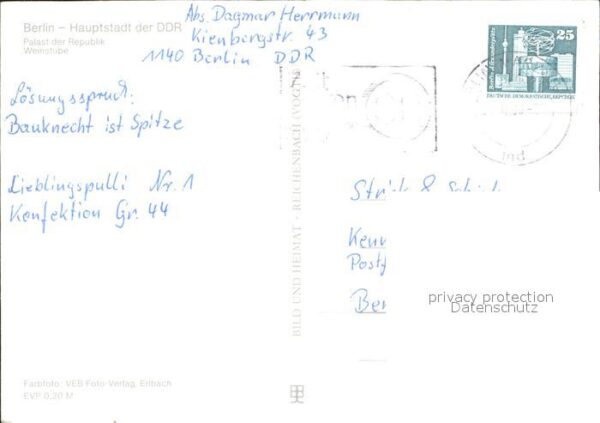 Berlin – Hauptstadt der DDR
Palast der Republik
Weinstube
Abs. Dagmar Herrmann
Kienbergstr. 43
1140 Berlin DDR
Lösungsspruch:
Bauknecht ist Spitze
Lieblingspulli Nr. 1
Konfektion Gr. 44
BILD UND HEIMAT · REICHENBACH (VOGTL)
25
DEUTSCHE DEMOKRATISCHE REPUBLIK
Kenn
Postf
Ber
privacy protection
Datenschutz
Farbfoto: VEB Foto-Verlag, Erlbach
EVP 0,20 M